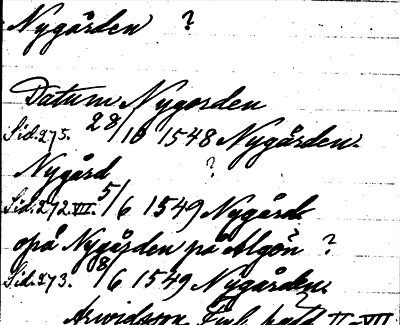 Nygården ?
Datum Nygorden
Sid. 275. 28/10 1548 Nygården.
Nygård ?
Sid. 272 VII. 5/6 1549 Nygård
på Nygården på Algön ?
Sid. 273. 8/6 1549 Nygården.
Arwidsson Finl. häfd II-VII